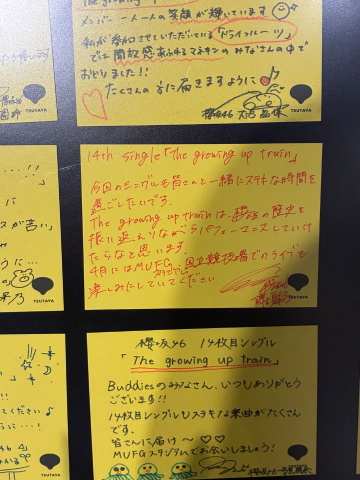 The growing up train
メンバー 一人一人の笑顔が輝いています
私が参加させていただいている「ドライフルーツ」
では開放感あふれるマネキンのみなさんの中で
おどりました!!
たくさんの方に届きますように
櫻坂46
TSUTAYA
TSUTAYA
14th single「The growing up train」
今回のシングルも皆さんと一緒にステキな時間を
過ごしたいです。
The growing up trainは、櫻坂の歴史を
振り返えりながらパフォーマンスしていけ
たらなと思います。
4月にはMUFG スタジアム 国立競技場でのライブも
楽しみにしていてください
TSUTAYA
スが苦い
TSUTAYA
櫻坂46 14枚目シングル
「The growing up train」
Buddiesのみなさん、いつもありがとう
ございます!!
14枚目シングルもステキな楽曲がたくさん
です。
皆さんに届け〜♡♡
MUFGスタジアムでお会いしましょう!
櫻坂46
TSUTAYA